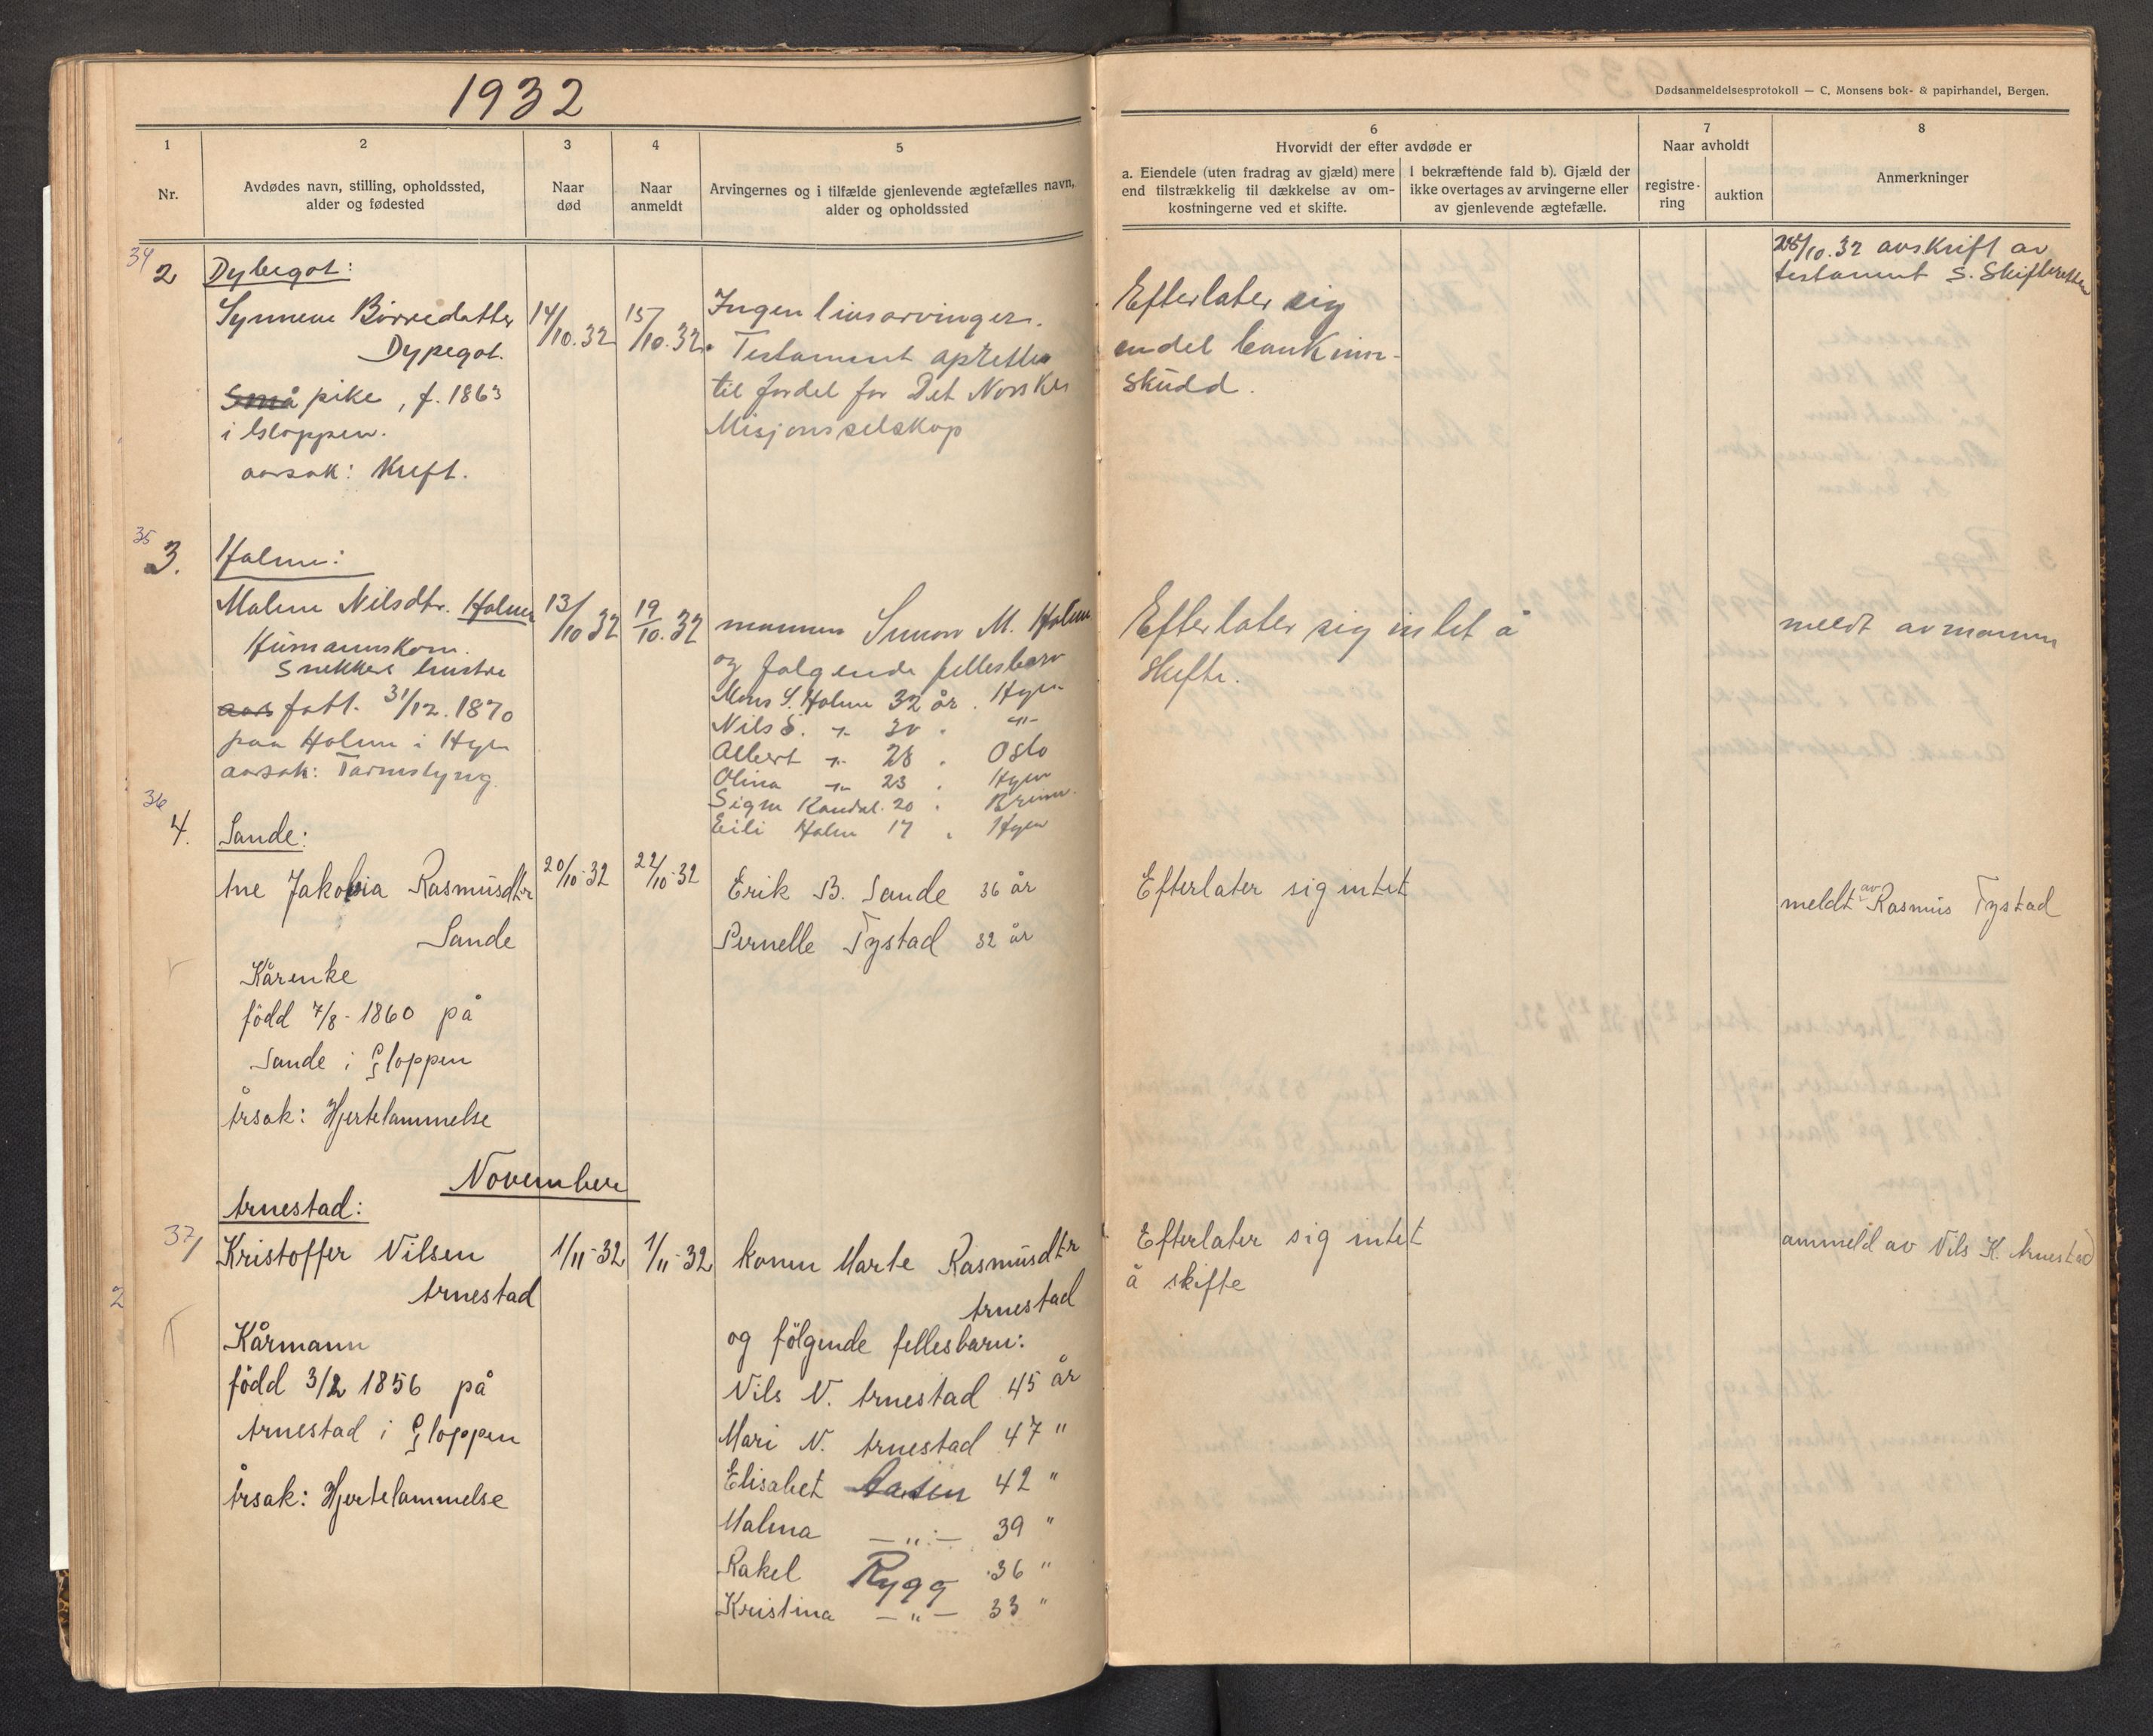 1932
Dødsanmeldelsesprotokoll — C. Monsens bok- & papirhandel, Bergen.
1
2
3
4
5
6
7
8
Nr.
Avdødes navn, stilling, opholdssted,
alder og fødested
Naar
død
Naar
anmeldt
Arvingernes og i tilfælde gjenlevende ægtefælles navn,
alder og opholdssted
Hvorvidt der efter avdøde er
a. Eiendele (uten fradrag av gjæld) mere
end tilstrækkelig til dækkelse av om-
kostningerne ved et skifte.
I bekræftende fald b). Gjæld der
ikke overtages av arvingerne eller
av gjenlevende ægtefælle.
Naar avholdt
registre-
ring
auktion
Anmerkninger
34
2
Dybegot:
Synneve Børredatter
Dypegot.
Små pike, f. 1863
i Gloppen.
aarsak: Kreft.
14/10.32
15/10.32.
Ingen livsarvinger.
Testament oprettes
til fordel for Det Norske
Misjonsselskap
Efterlater sig
endel bankinn-
skudd.
28/10.32 avskrift av
testament s. Skifteretten
35
3.
Holme:
Malene Nilsdtr. Holme
Husmannskone.
Snekker hustru
født. 31/12.1870
paa Holme i Hyen
aarsak: Tarmslyng
13/10 32
19/10.32
mannen Simon M. Holme
og følgende fellesbarn
Mons S. Holme 32 år. Hyen
Nils S. -"- 30 . -"-
Albert -"- 28 . Oslo
Olina -"- 23 . Hyen
Signe Kandal. 20 .
Eili Holme 17 . Hyen
Efterlater sig intet å
skifte.
meldt av mannen
36
4.
Sande:
Ane Jakobia Rasmusdtr
Sande
Kårenke
född 7/8-1860 på
Sande i Gloppen
Årsak: Hjertelammelse
20/10-32
22/10-32
Erik B. Sande 36 år
Pernelle Tystad 32 år
Efterlater sig intet
meldt av Rasmus Tystad
November
Arnestad:
37/
Kristoffer Nilsen
Arnestad
Kårmann
född 3/2 1856 på
Arnestad i Gloppen
Årsak: Hjertelammelse
1/11-32
1/11-32
konen Marte Rasmusdtr
Arnestad
og fölgende fellesbarn:
Nils N. Arnestad 45 år
Mari N. Arnestad 47 "
Elisabet Aasen 42 "
Malena —"— 39 "
Rakel Rygg 36 "
Kristina —"— 33 "
Efterlater sig intet
å skifte
anmeld av Nils K. Arnestad
2